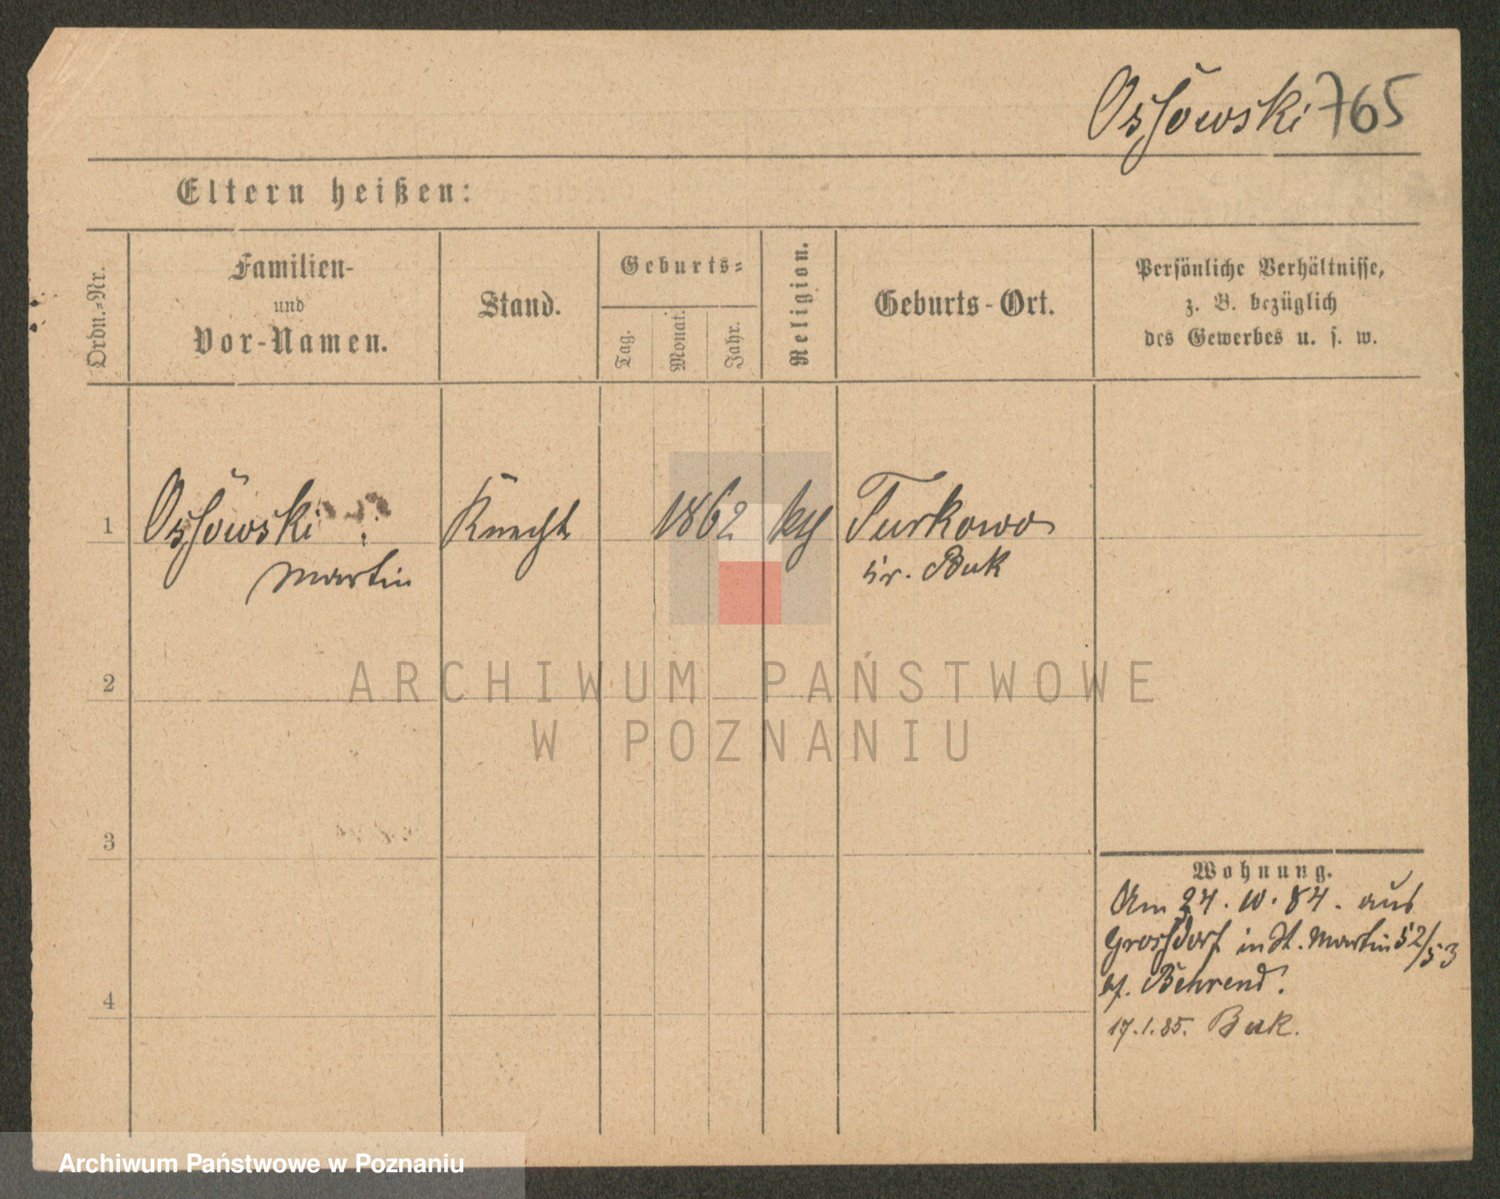 Ossowski 765
Eltern heißen:
Ordn.-Nr.
Familien-
und
Vor-Namen.
Stand.
Geburts-
Tag.
Monat.
Jahr.
Religion.
Geburts-Ort.
Persönliche Verhältnisse,
z. B. bezüglich
des Gewerbes u. s. w.
1
Ossowski
Martin
Knecht
1862
Turkowo
Kr. Buk
2
ARCHIWUM PAŃSTWOWE
W POZNANIU
3
Wohnung.
Am 24. 10. 84. aus
Grossdorf in St. Martin 52/53
bei Behrend.
17.1.85. Buk.
4
Archiwum Państwowe w Poznaniu